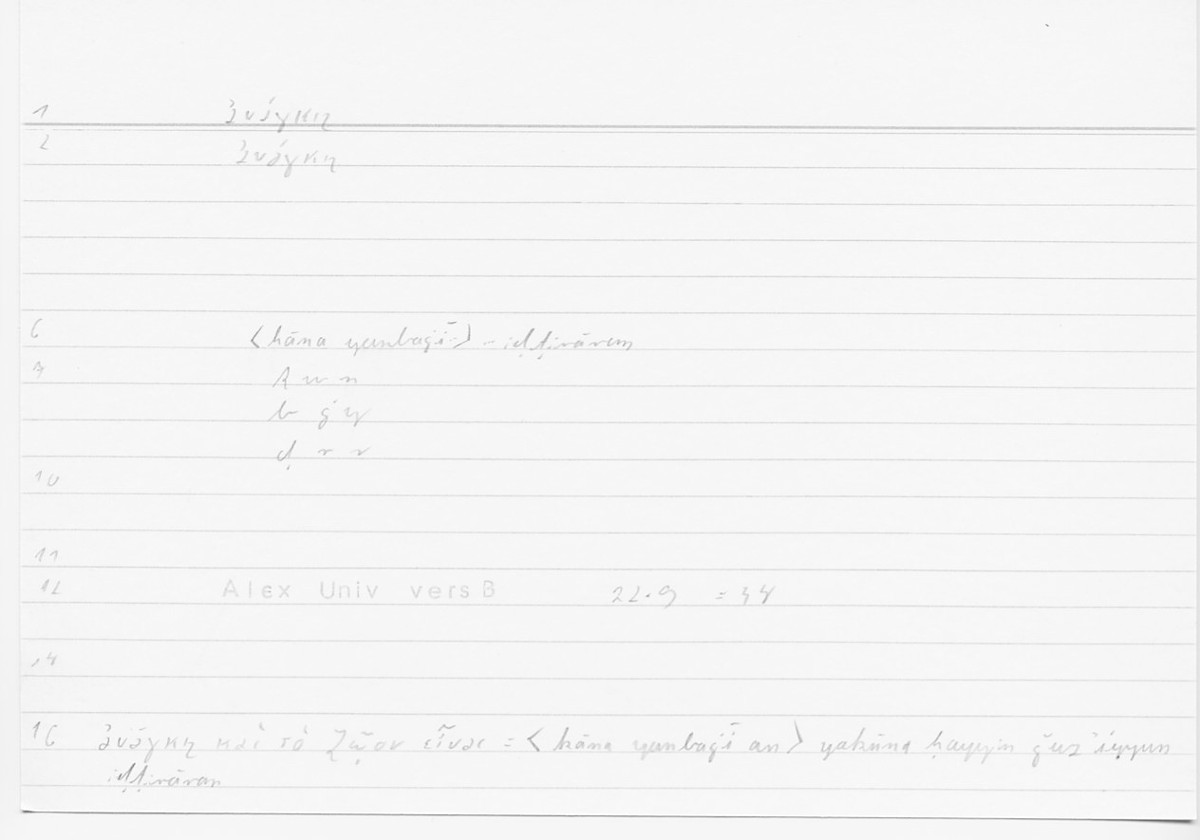 1 ἀνάγκη
2 ἀνάγκη
6 <kāna yanbaġī> - iḍṭirāran
7 k w n
b ġ y
ḍ r r
10
11
12 Alex Univ vers B 22.9 = 34
14
16 ἀνάγκη καὶ τὸ ζῷον εἶναι = <kāna yanbaġī an> yakūna ḥayyun ǧuz'iyyun
iḍṭirāran